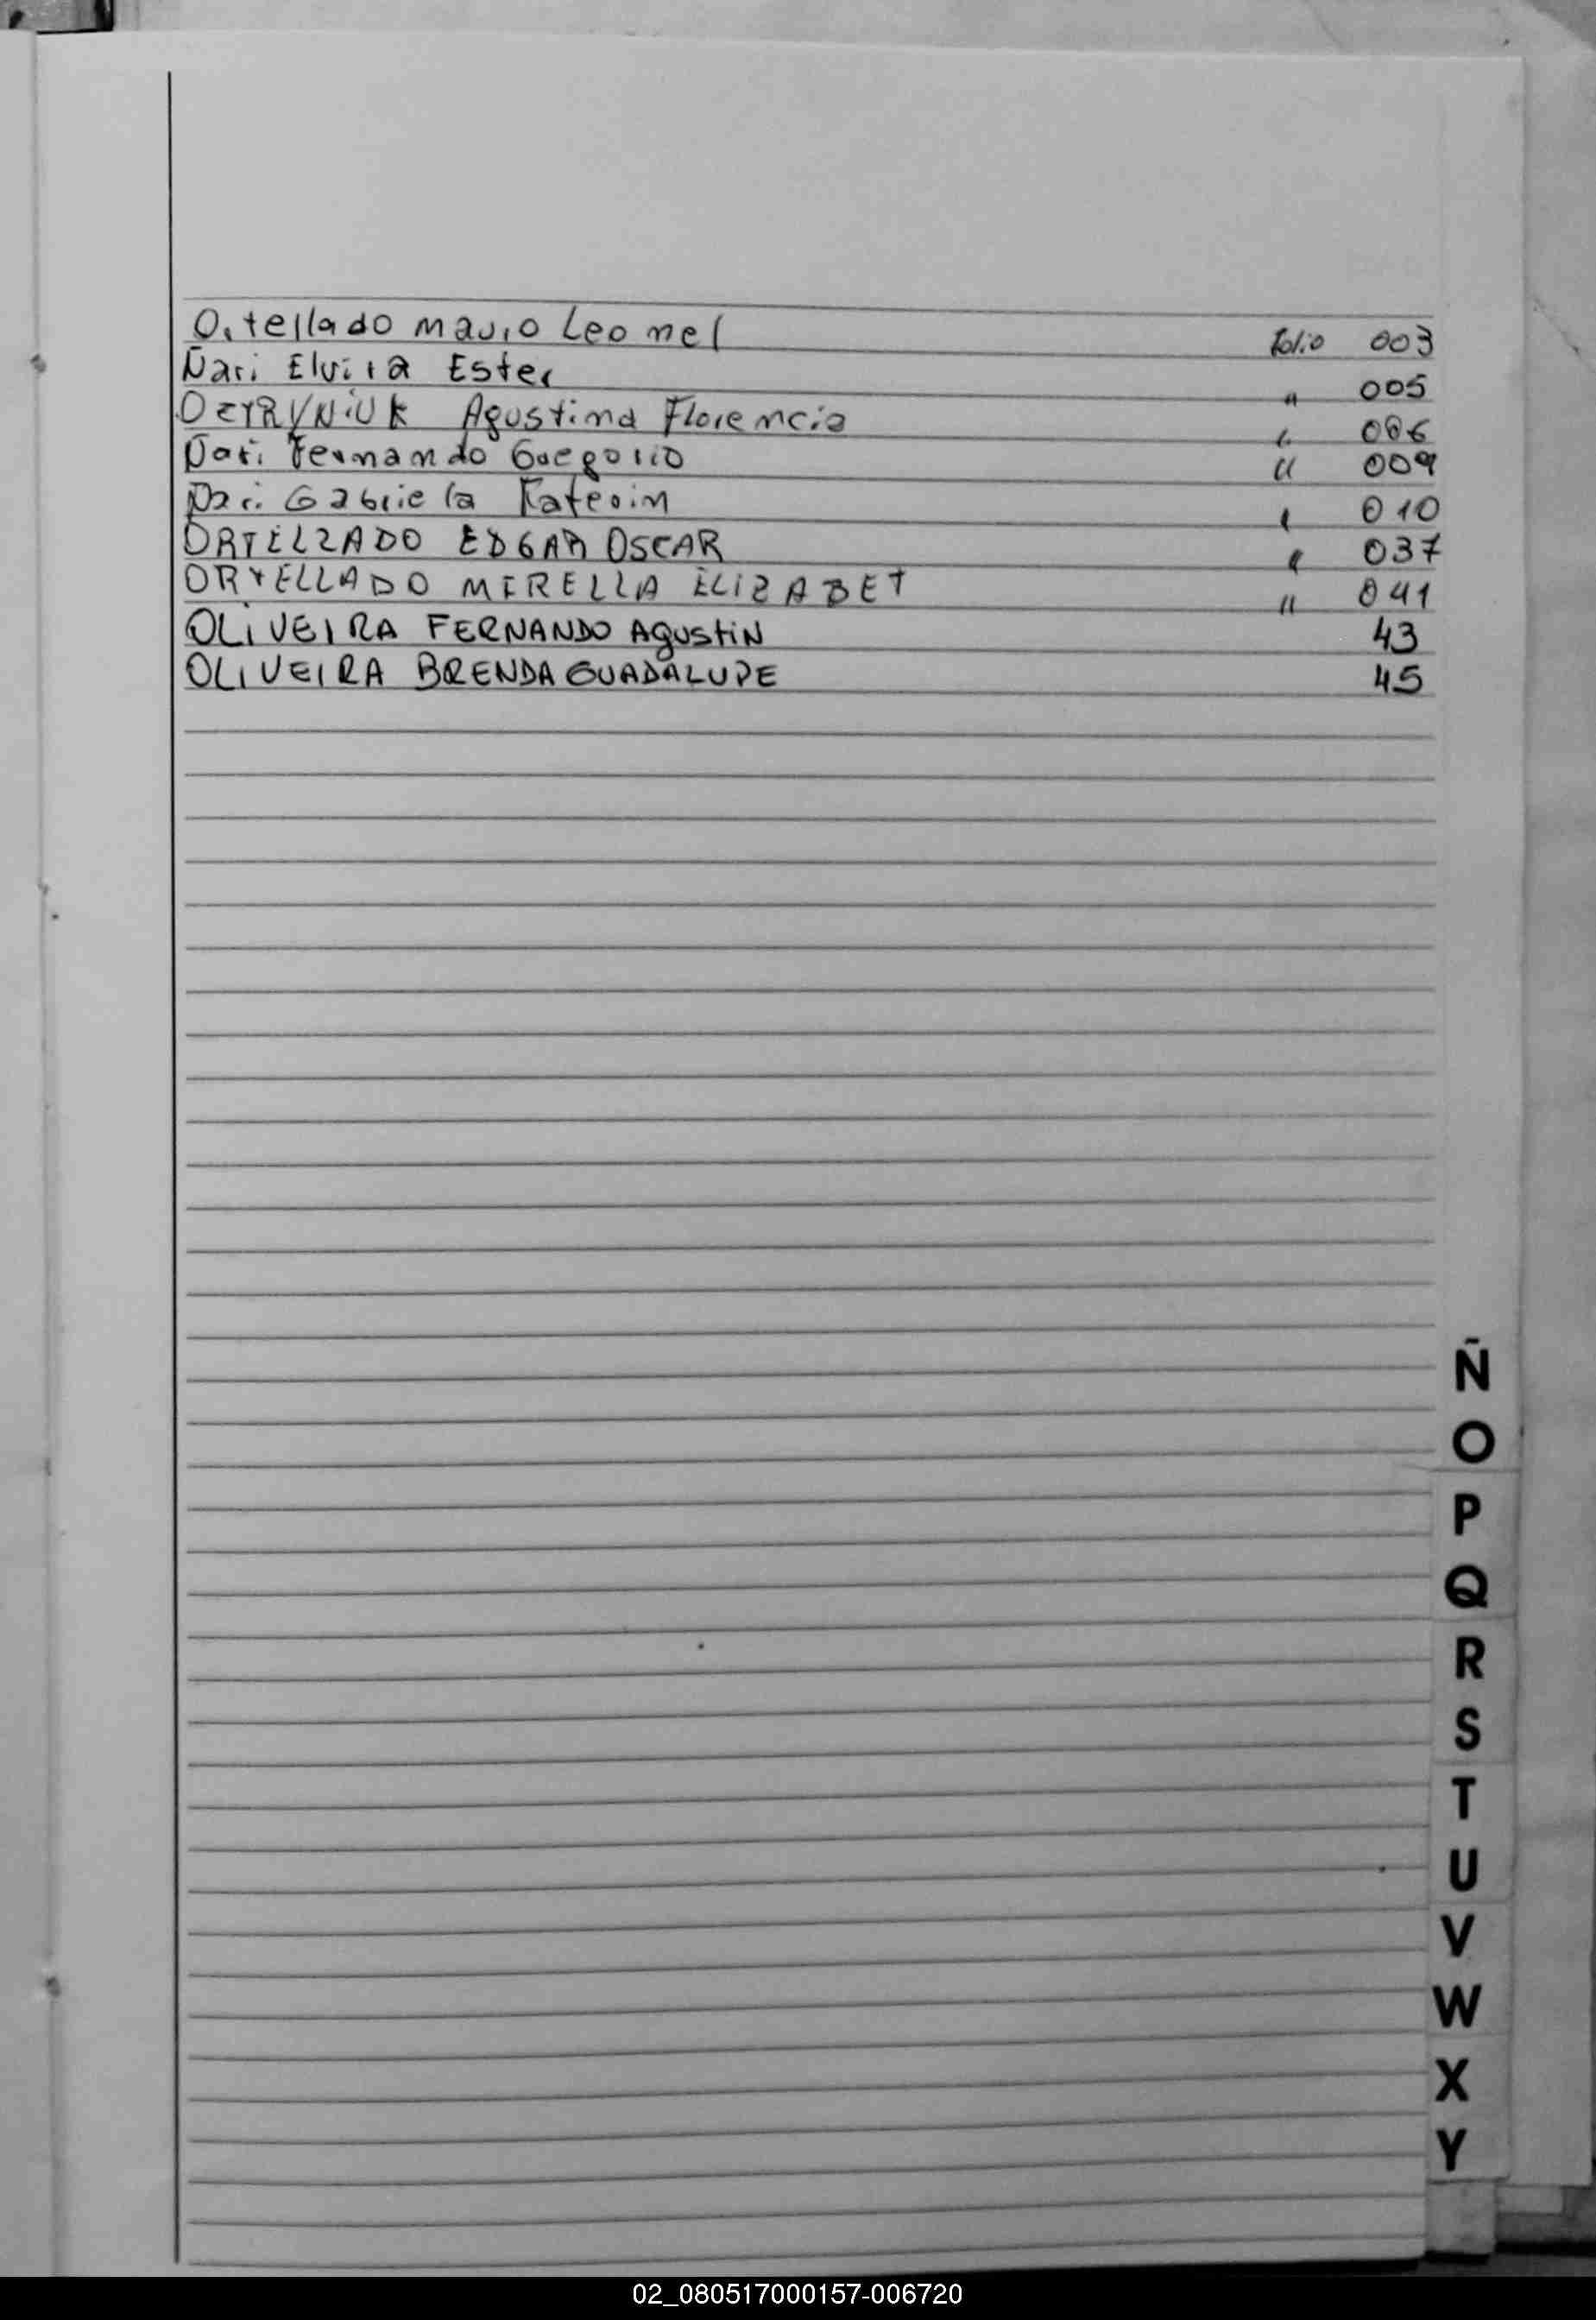 Ortellado mauro Leonel folio 003
Ñari Elvira Ester " 005
OZYRYNIUK Agustina Florencia " 006
Ñari Fernando Gregorio " 009
Ñari Gabriela Kateoin " 010
ORTELLADO EDGAR OSCAR " 037
ORTELLADO MIRELLA ELIZABET " 041
OLIVEIRA FERNANDO AgustiN 43
OLIVEIRA BRENDA GUADALUPE 45
Ñ
O
P
Q
R
S
T
U
V
W
X
Y
02_080517000157-006720